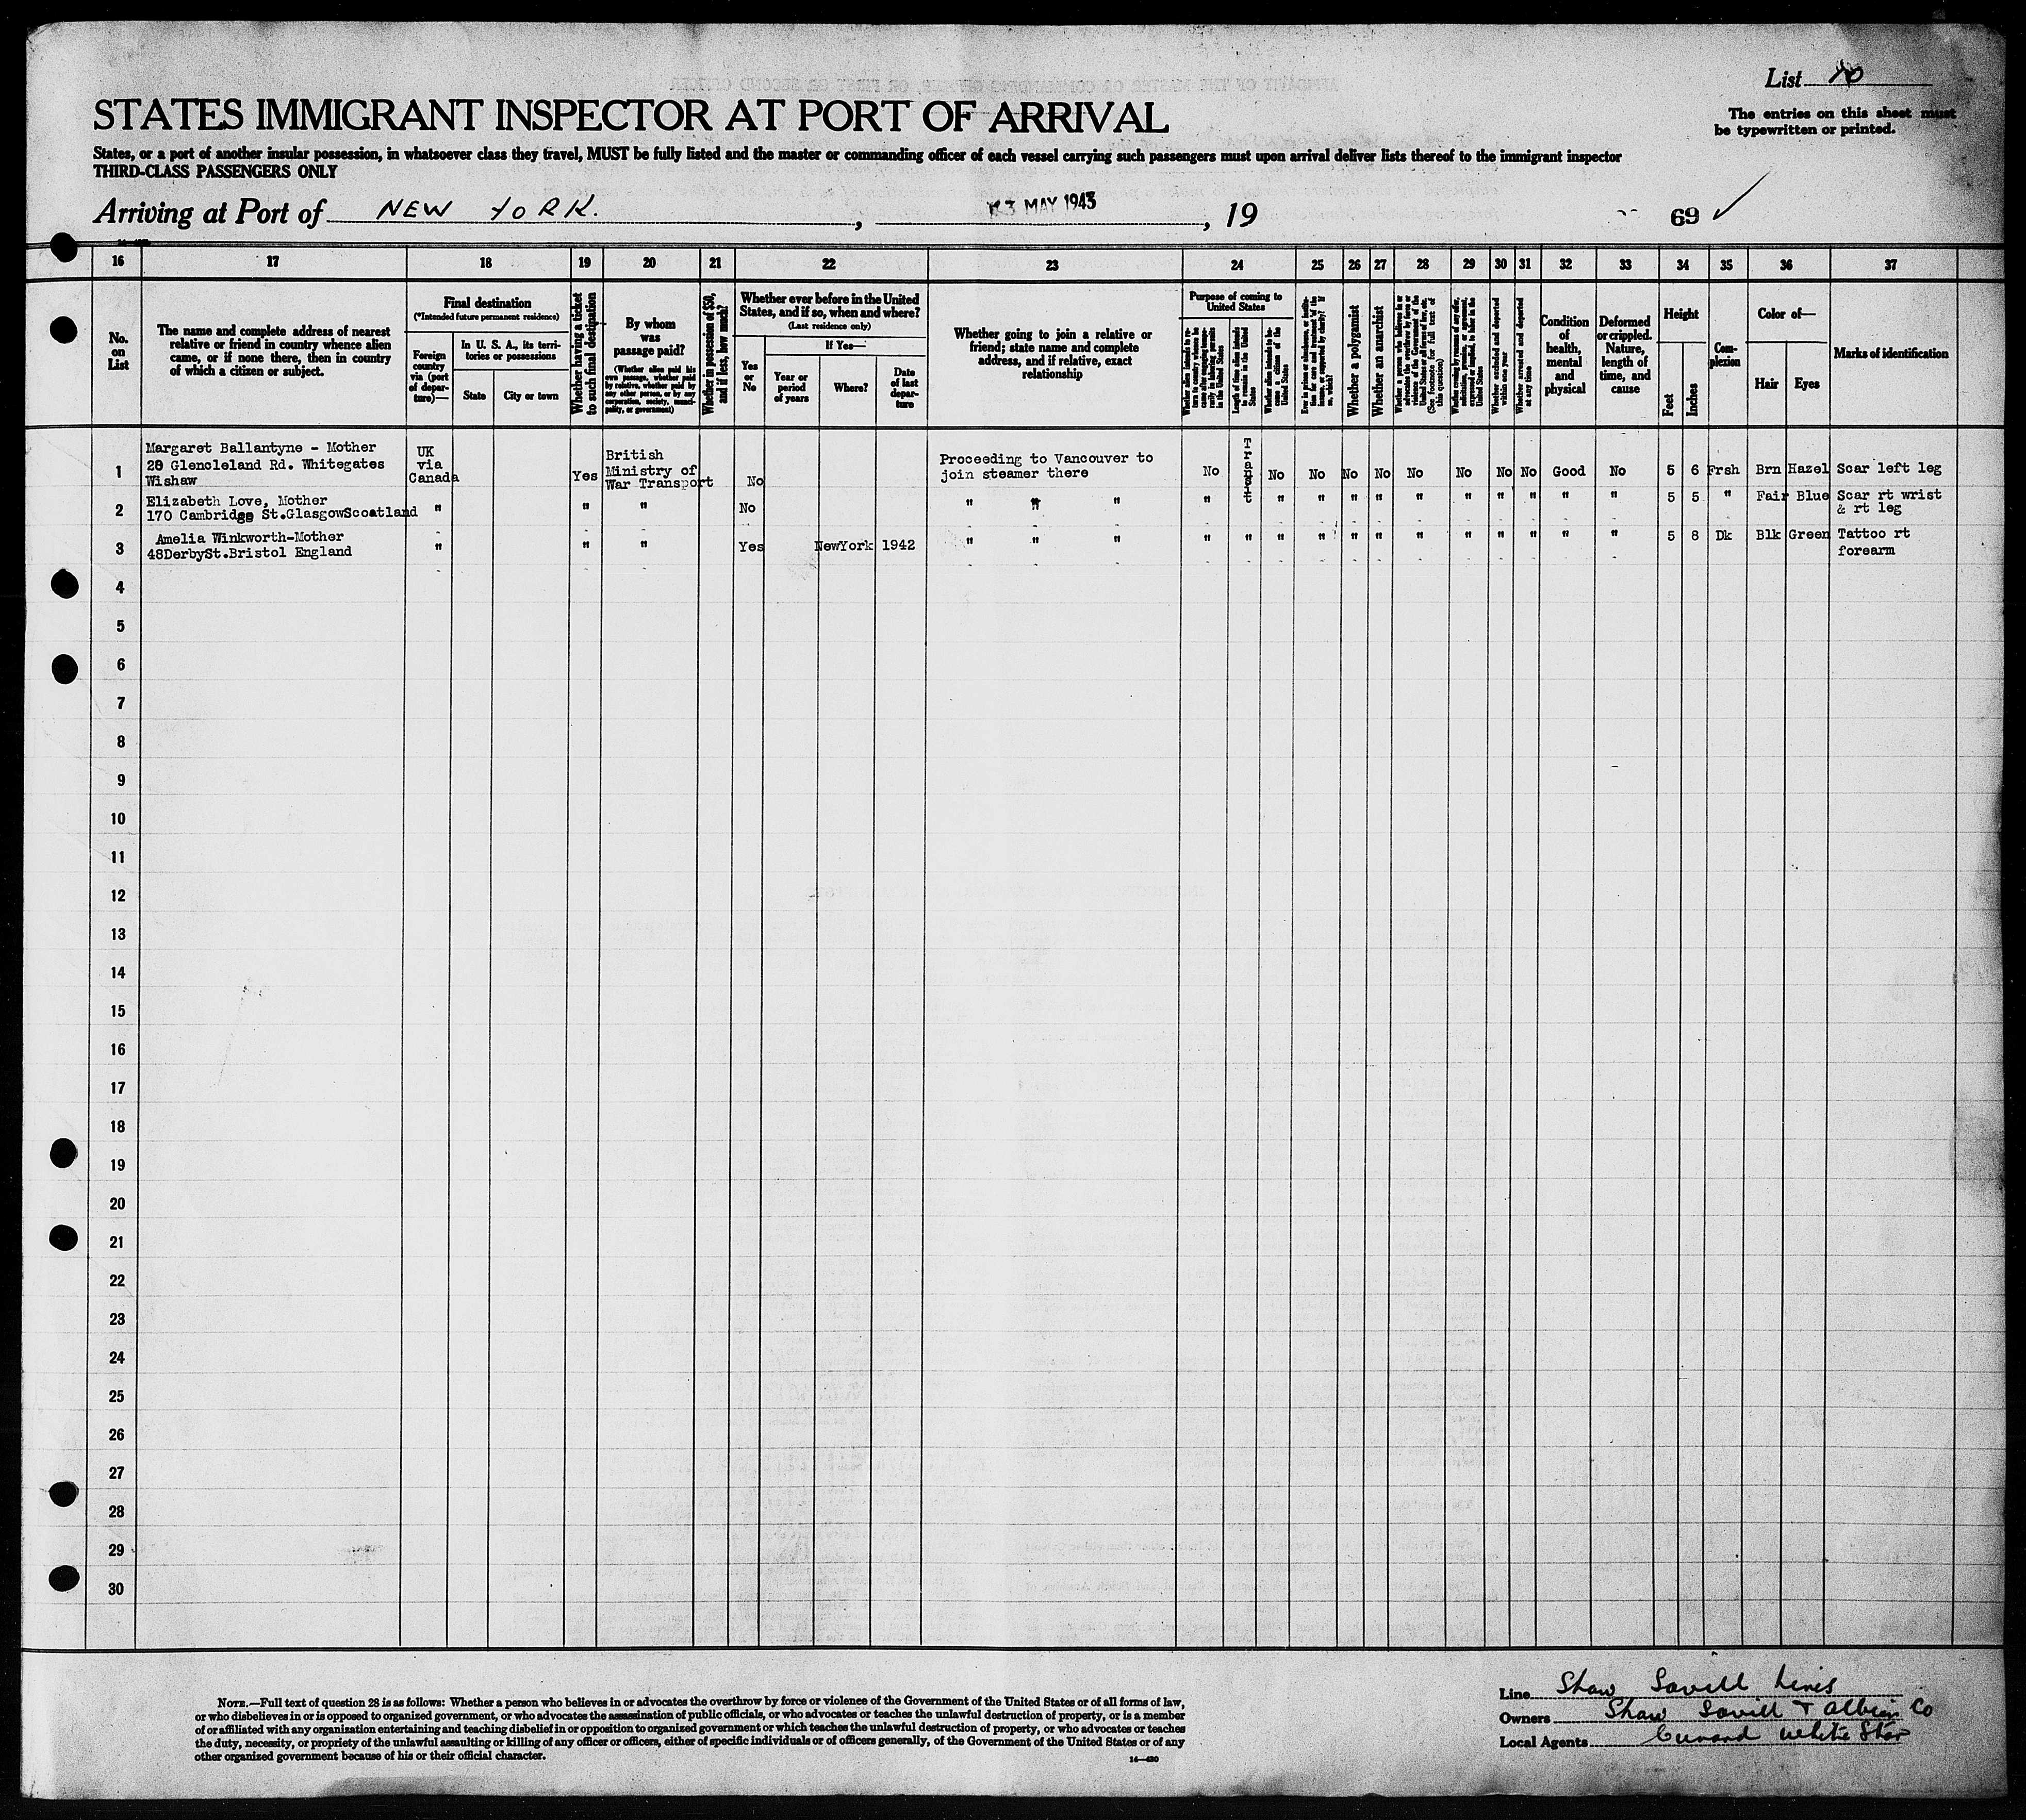 List 10
STATES IMMIGRANT INSPECTOR AT PORT OF ARRIVAL
The entries on this sheet must
be typewritten or printed.
States, or a port of another insular possession, in whatsoever class they travel, MUST be fully listed and the master or commanding officer of each vessel carrying such passengers must upon arrival deliver lists thereof to the immigrant inspector
THIRD-CLASS PASSENGERS ONLY
Arriving at Port of NEW YORK. , 3 MAY 1943 , 19
69 ✓
16 17 18 19 20 21 22 23 24 25 26 27 28 29 30 31 32 33 34 35 36 37
No. on List
The name and complete address of nearest
relative or friend in country whence alien
came, or if none there, then in country
of which a citizen or subject.
Final destination
(*Intended future permanent residence)
Foreign country via (port of departure)—
In U. S. A., its territories or possessions
State
City or town
Whether having a ticket to such final destination
By whom was passage paid?
(Whether alien paid his own passage, whether paid by relative, whether paid by any other person, or by any corporation, society, municipality, or government)
Whether in possession of $50, and if less, how much?
Whether ever before in the United
States, and if so, when and where?
(Last residence only)
Yes or No
If Yes—
Year or period of years
Where?
Date of last departure
Whether going to join a relative or
friend; state name and complete
address, and if relative, exact
relationship
Purpose of coming to
United States
Whether alien intends to return to country whence he came after engaging temporarily in laboring pursuits in the United States
Length of time alien intends to remain in the United States
Whether alien intends to become a citizen of the United States
Whether a polygamist
Whether an anarchist
Whether excluded and deported within one year
Whether arrested and deported at any time
Condition of health, mental and physical
Deformed or crippled. Nature, length of time, and cause
Height
Feet
Inches
Complexion
Color of—
Hair
Eyes
Marks of identification
1 Margaret Ballantyne - Mother
28 Glencleland Rd. Whitegates
Wishaw
UK
via
Canada
Yes
British
Ministry of
War Transport
No
Proceeding to Vancouver to
join steamer there
No No No No No No No No No Good No 5 6 Frsh Brn Hazel Scar left leg
2 Elizabeth Love, Mother
170 Cambridge St.GlasgowScoatland
" " " No " " " " " " " " " " " " " " 5 5 " Fair Blue Scar rt wrist
& rt leg
3 Amelia Winkworth-Mother
48DerbySt.Bristol England
" " " Yes NewYork 1942 " " " " " " " " " " " " " " " 5 8 Dk Blk Green Tattoo rt
forearm
4
5
6
7
8
9
10
11
12
13
14
15
16
17
18
19
20
21
22
23
24
25
26
27
28
29
30
NOTE.—Full text of question 28 is as follows: Whether a person who believes in or advocates the overthrow by force or violence of the Government of the United States or of all forms of law,
or who disbelieves in or is opposed to organized government, or who advocates the assassination of public officials, or who advocates or teaches the unlawful destruction of property, or is a member
of or affiliated with any organization entertaining and teaching disbelief in or opposition to organized government or which teaches the unlawful destruction of property, or who advocates or teaches
the duty, necessity, or propriety of the unlawful assaulting or killing of any officer or officers, either of specific individuals or of officers generally, of the Government of the United States or of any
other organized government because of his or their official character.
Line Shaw Savill Lines
Owners Shaw Savill & Albion Co
Local Agents Cunard White Star